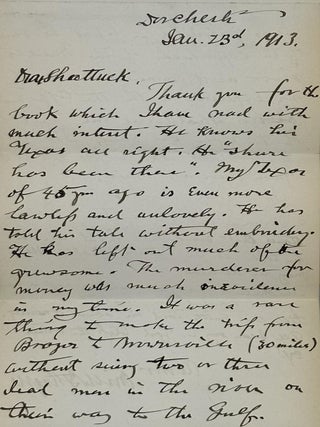 Dorchester
Jan. 23d, 1913.
Dear Shattuck.
Thank you for the
book which I have read with
much interest. He knows his
Texas all right. He "shure
has been there". My Texas
of 45 yrs ago is even more
lawless and unlovely. He has
told his tale without embroidery.
He has left out much of the
gruesome. The murderer for
money was much in evidence
in my time. It was a rare
thing to make the trip from
Brazos to Brownsville (30 miles)
without seeing two or three
dead men in the river on
their way to the Gulf.